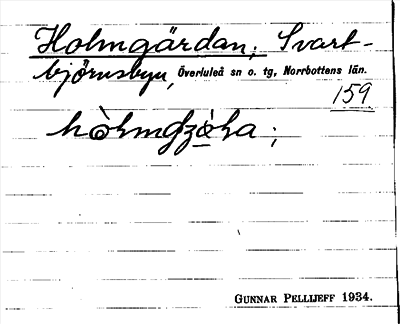 Holmgärdan; Svart-
björnsbyn, Överluleå sn o. tg, Norrbottens län.
159
GUNNAR PELLIJEFF 1934.